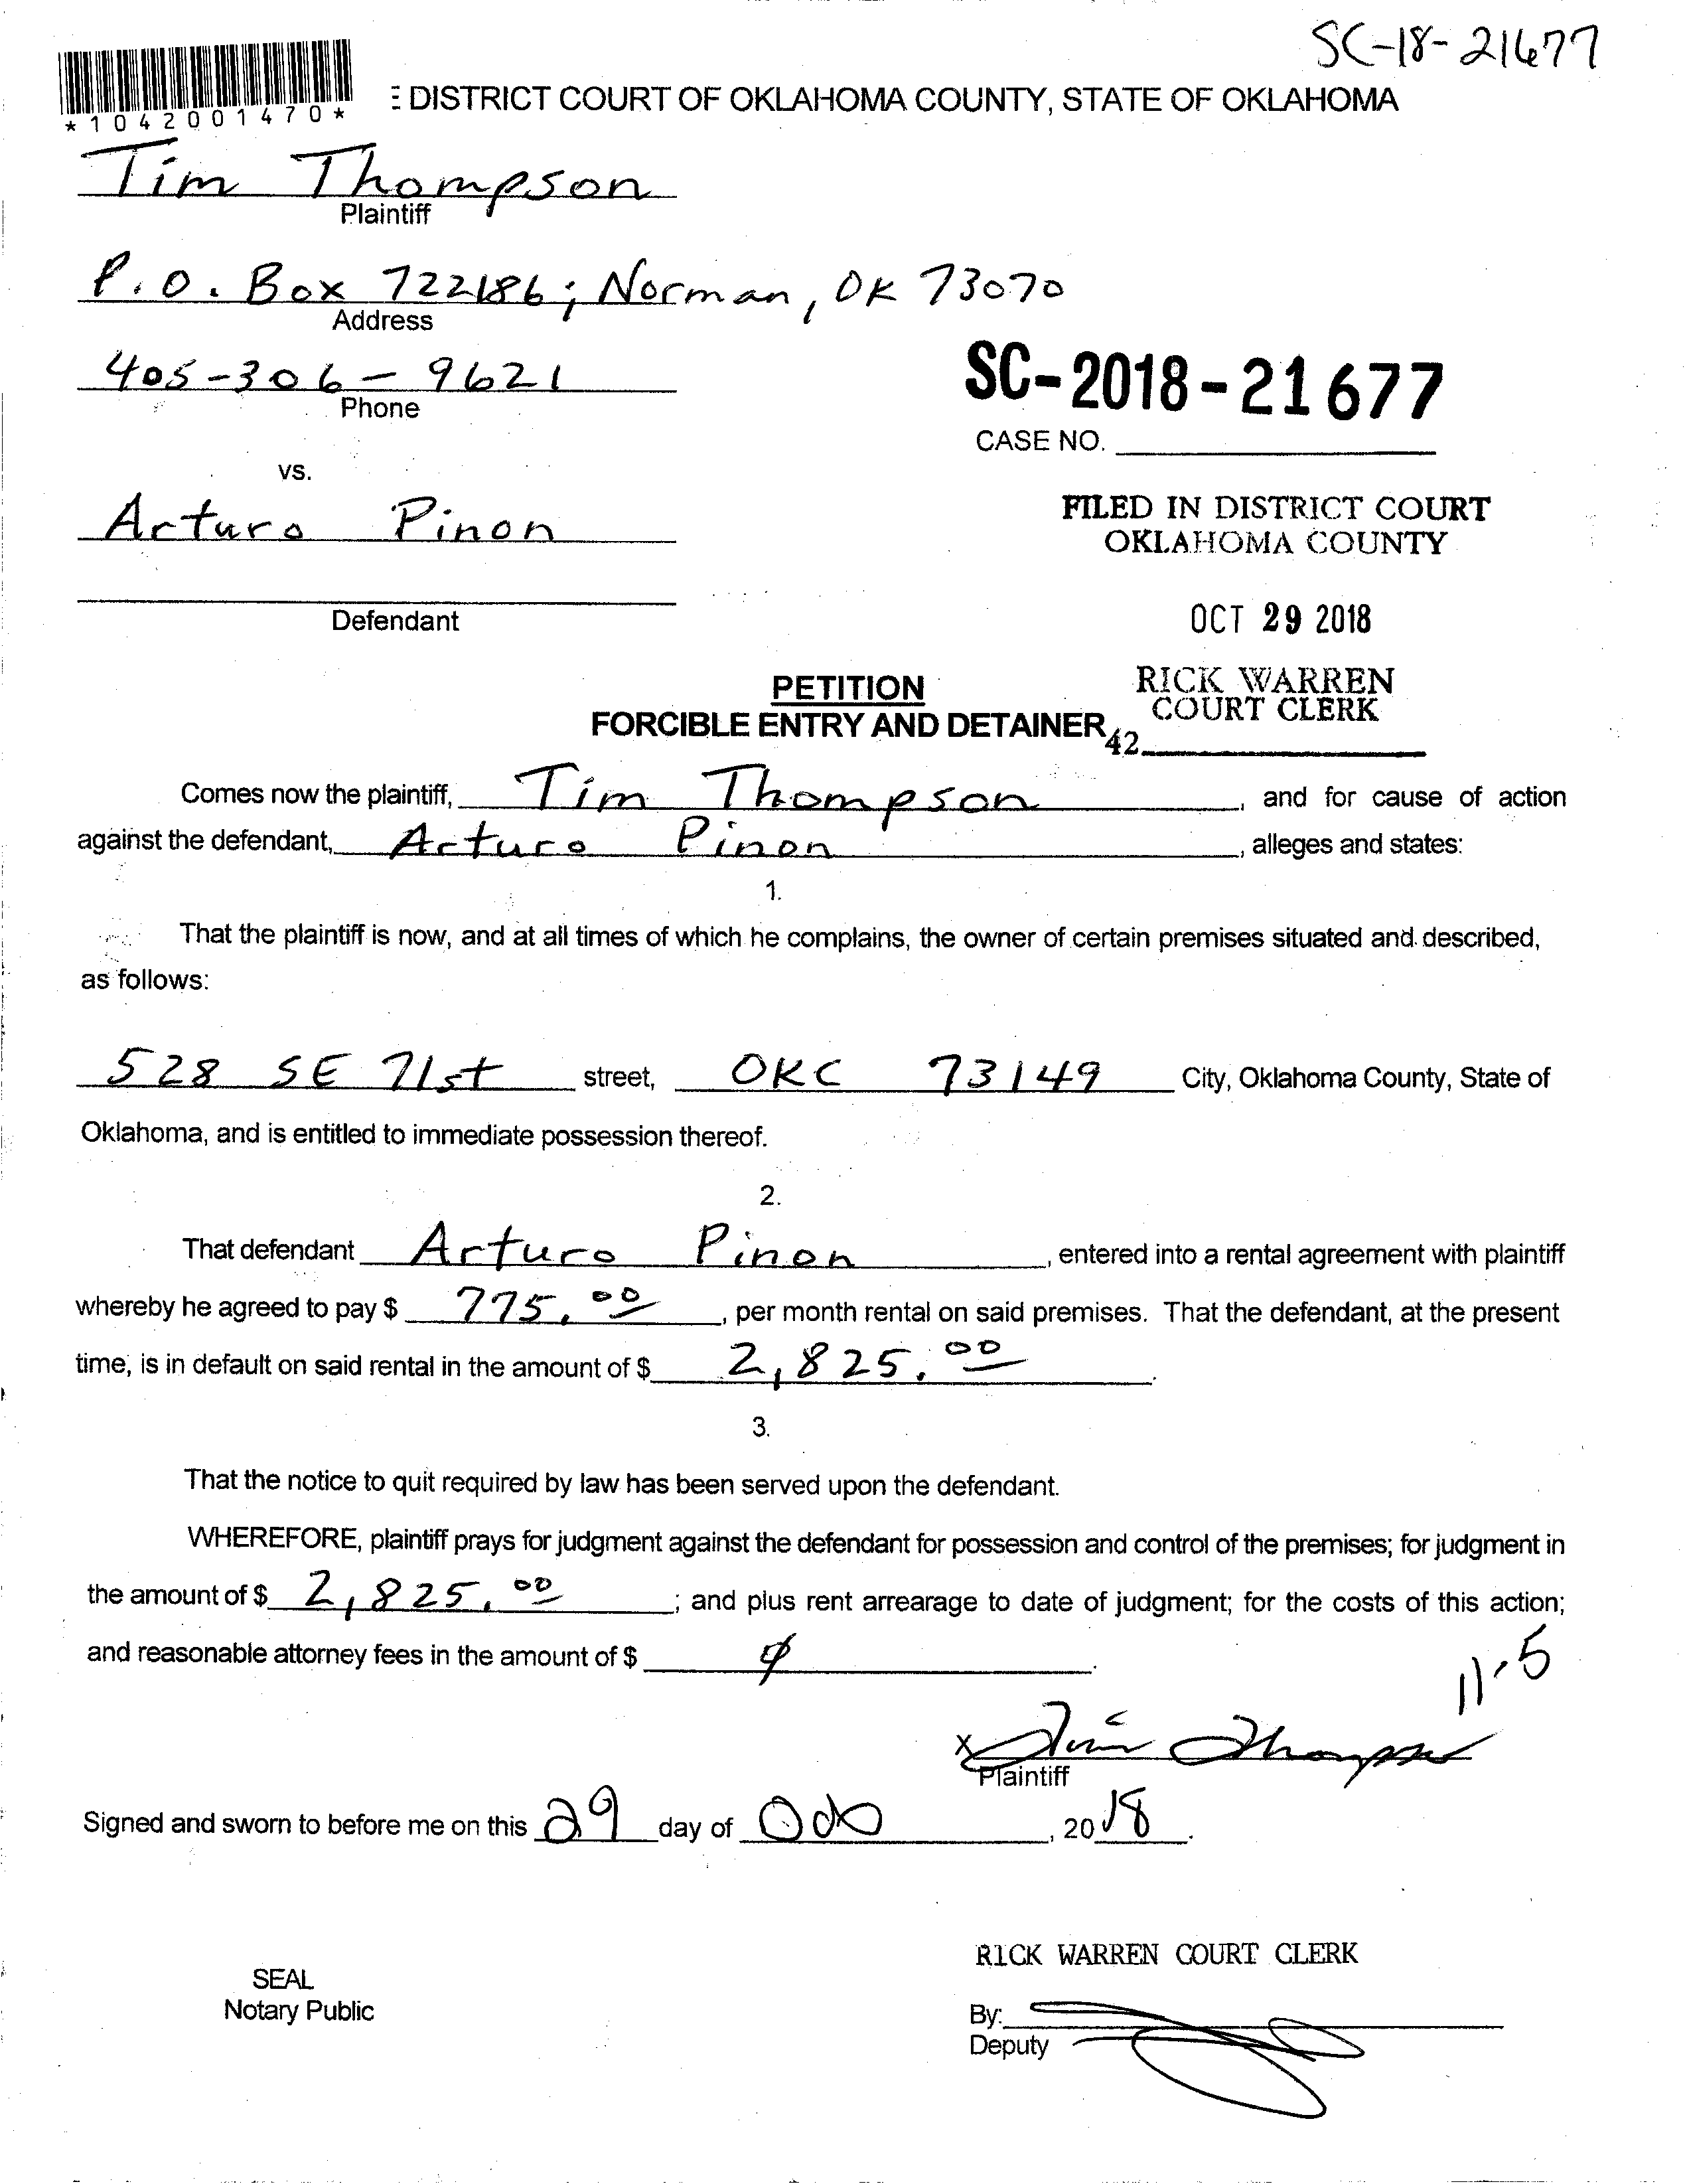 SC-18-21677
*1042001470*
DISTRICT COURT OF OKLAHOMA COUNTY, STATE OF OKLAHOMA
Tim Thompson
Plaintiff
P.O. Box 722186; Norman, OK 73070
Address
405-306-9621
Phone
SC-2018-21677
CASE NO.
vs.
Arturo Pinon
FILED IN DISTRICT COURT
OKLAHOMA COUNTY
Defendant
OCT 29 2018
PETITION
RICK WARREN
COURT CLERK
FORCIBLE ENTRY AND DETAINER
42
Comes now the plaintiff, Tim Thompson, and for cause of action
against the defendant, Arturo Pinon, alleges and states:
1.
That the plaintiff is now, and at all times of which he complains, the owner of certain premises situated and described,
as follows:
528 SE 71st street, OKC 73149 City, Oklahoma County, State of
Oklahoma, and is entitled to immediate possession thereof.
2.
That defendant Arturo Pinon, entered into a rental agreement with plaintiff
whereby he agreed to pay $ 775.00, per month rental on said premises. That the defendant, at the present
time, is in default on said rental in the amount of $ 2,825.00.
3.
That the notice to quit required by law has been served upon the defendant.
WHEREFORE, plaintiff prays for judgment against the defendant for possession and control of the premises; for judgment in
the amount of $ 2,825.00; and plus rent arrearage to date of judgment; for the costs of this action;
and reasonable attorney fees in the amount of $
11-5
X Tim Thompson
Plaintiff
Signed and sworn to before me on this 29 day of , 2018.
RICK WARREN COURT CLERK
SEAL
Notary Public
By:
Deputy